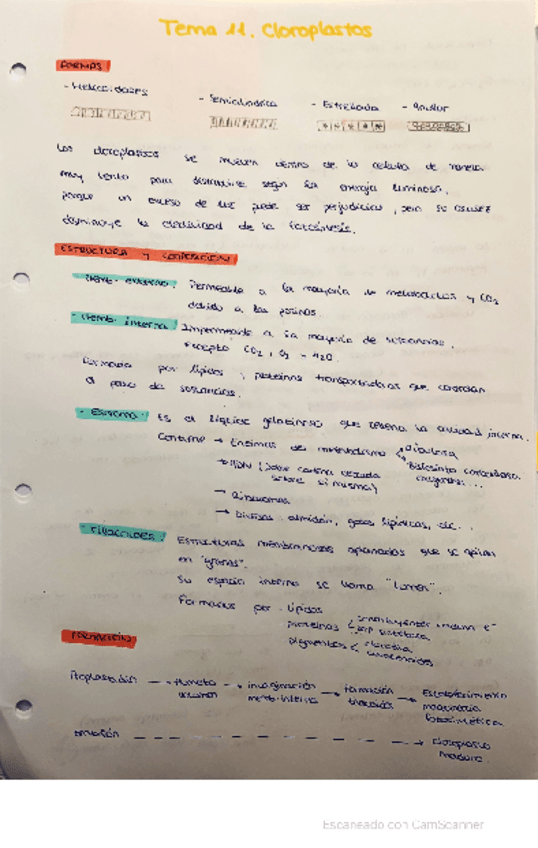 Tema 11. Cloroplastos
FORMAS
- Helicoidales - Semicilíndrica - Estrellada - Anular
Los cloroplastos se mueven dentro de la célula de manera
muy lenta para distribuirse según la energía luminosa,
porque un exceso de luz puede ser perjudicial, pero su escasez
disminuye la efectividad de la fotosíntesis.
ESTRUCTURA y COMPOSICIÓN
- Memb. externa: Permeable a la mayoría de metabolitos y CO2
debido a las porinas.
- Memb. interna: Impermeable a la mayoría de sustancias,
excepto CO2, O2 - H2O.
Formada por lípidos y proteínas transportadoras que controlan
el paso de sustancias.
- Estroma: Es el líquido gelatinoso que rellena la cavidad interna.
Contiene → Enzimas de metabolismo
→ ADN (doble cadena cerrada
sobre sí misma)
→ Ribosomas
→ almidón, gotas lipídicas, etc...
- TILACOIDES: Estructuras membranosas aplanadas que se apilan
en "granas".
Su espacio interno se llama "lumen".
Formados por - Lípidos
proteínas
pigmentos < clorofila
carotenoides
FORMACIÓN
Proplastidio → → invaginación → formación → Establecimiento
memb. interna tilacoides maquinaria
fotosintética
→ Cloroplasto
maduro